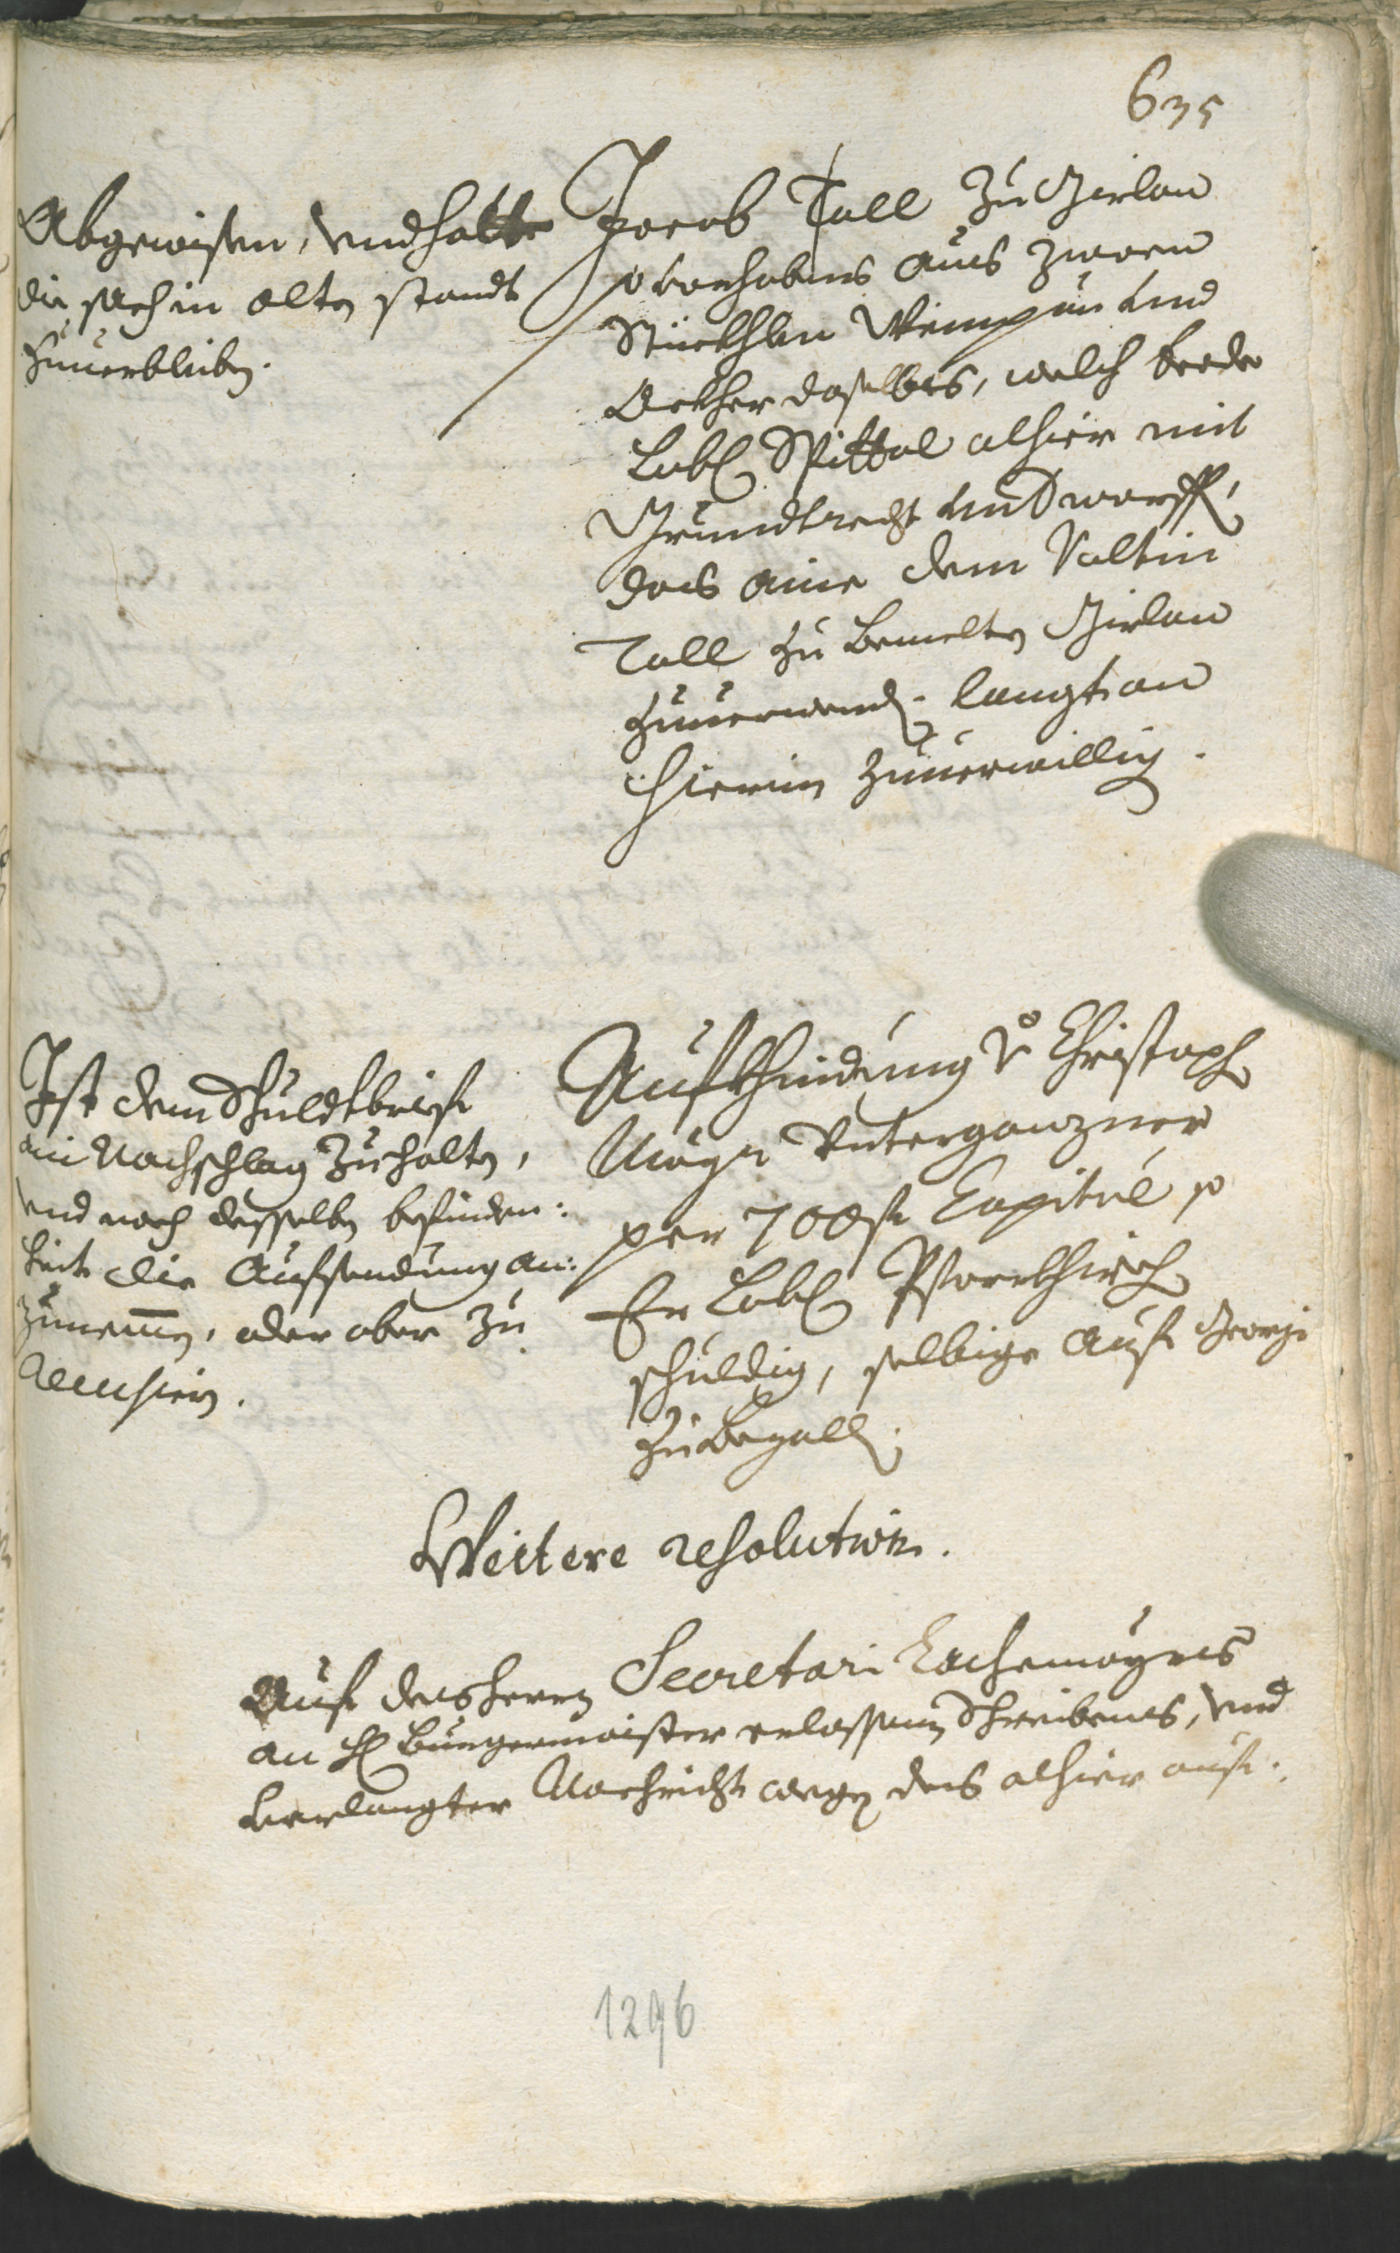 635
Abgewisen, vnd hatte
die sach in alten standt
zuuerbleiben.
Jacob Tall zu Girlan
vorhabens aus zwaen
Stückhlen Weingün vnd
Ackher daselbs, welch beede
Lobl Spittal alhier mit
Grundtrecht vndworffen,
das aine dem Valtin
Tall zu bemelten Girlan
zuuerwend. langt an
hierein zuuerwillig.
Ist dem Schuldtbrief
ain Nachschlag zuhalten,
vnd nach desselben befinden:
heit die Aufsendung an:
zunemen, oder aber zu
Recusiern.
Aufkhindung Christoph
Mayr Unterganzner
per 700 fl Capital so
Er Lobl Pfarrkhirch
schuldig, selbige auf Georgi
zubezallen.
Weitere resolution.
Auf des herrn Secretari Lachemayrs
an H Burgermaister erlassnen Schreibens, vnd
verlangter Nachricht wegen des alhier auf:
1296